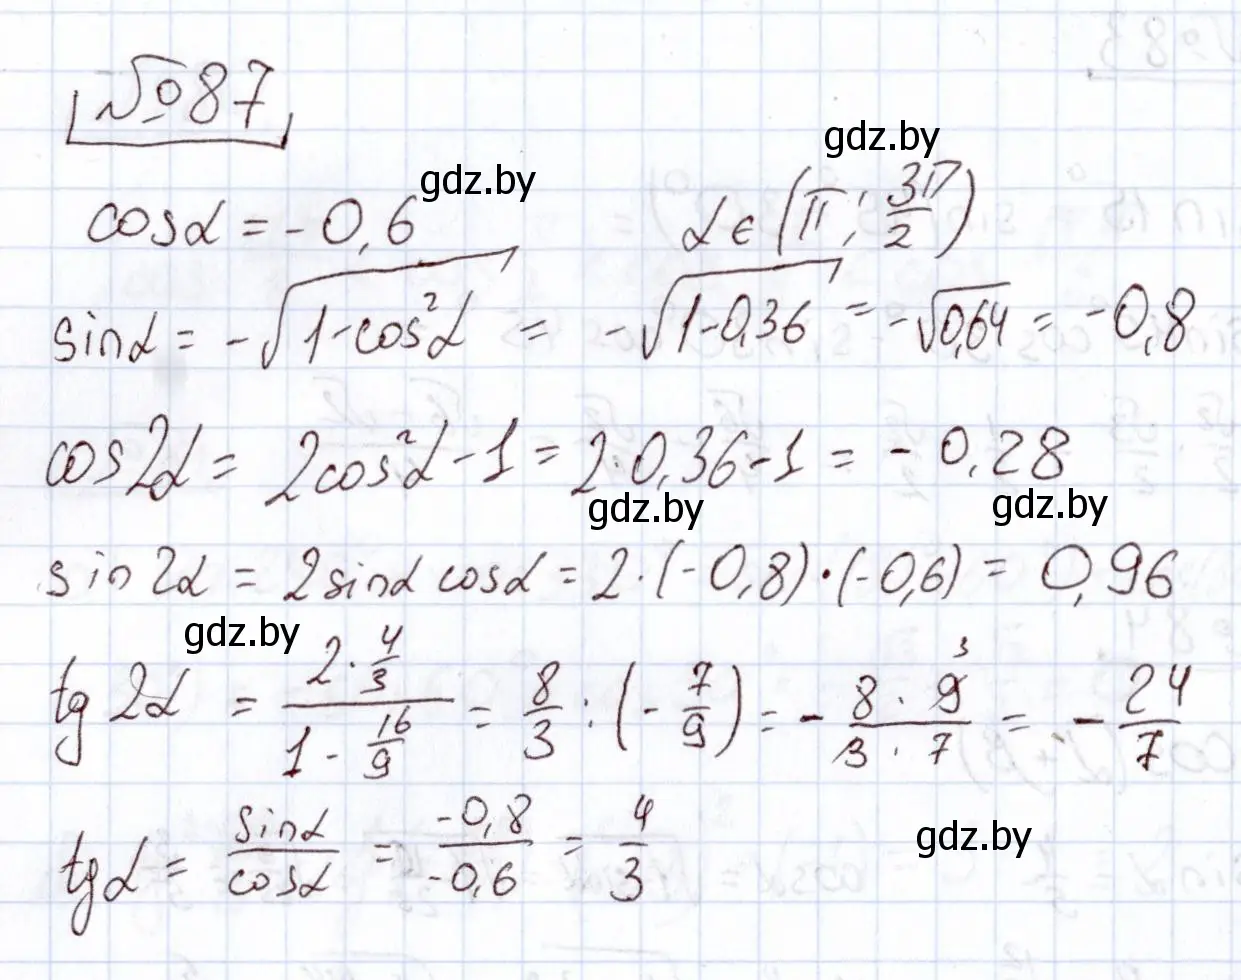 №87
gdz.by
gdz.by
cosα = -0,6   α ∈ (π; 3π/2)
sinα = -√(1-cos²α) = -√(1-0,36) = -√0,64 = -0,8
cos2α = 2cos²α - 1 = 2·0,36-1 = -0,28
gdz.by
gdz.by
sin2α = 2sinα cosα = 2·(-0,8)·(-0,6) = 0,96
gdz.by
tg2α = (2·4/3)/(1 - 16/9) = 8/3 : (-7/9) = - (8·9 3)/(3·7) = -24/7
gdz.by
tgα = sinα/cosα = -0,8/-0,6 = 4/3